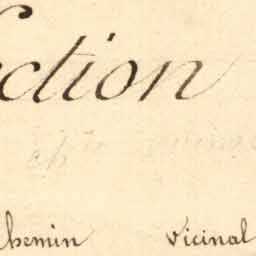 ction
chemin vicinal